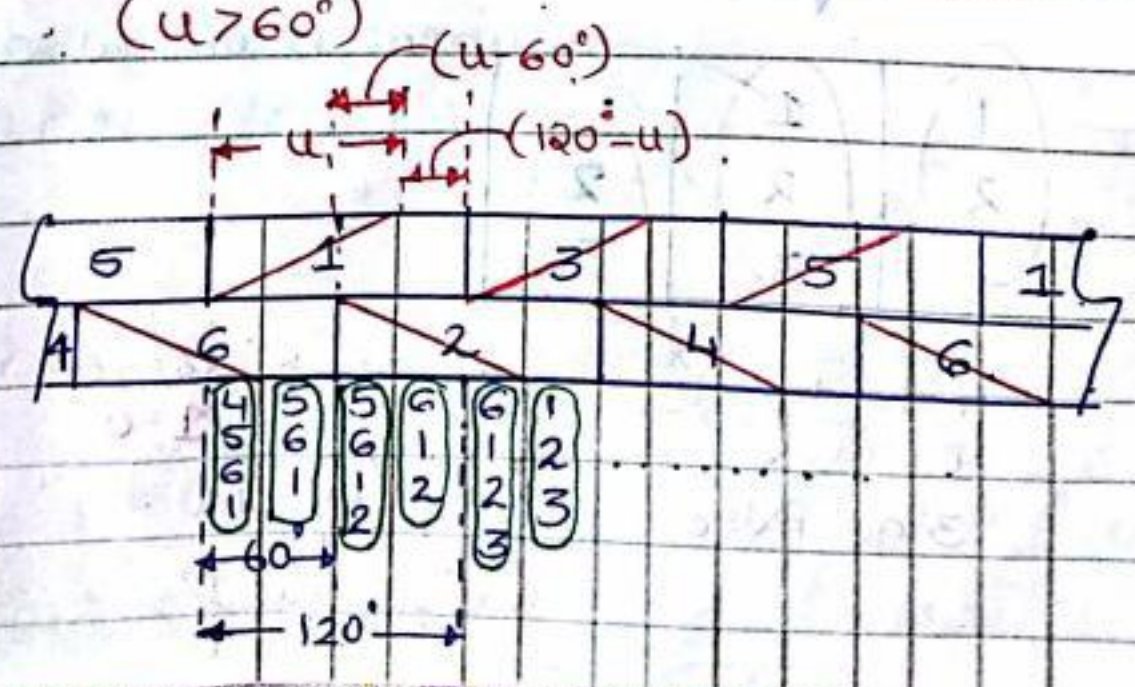 (u>60°)
(u-60°)
u
(120°-u)
5 1 3 5 1
4 6 2 4 6
4 5 5 6 6 1
5 6 6 1 1 2
6 1 1 2 2 3
1 2 3
60°
120°